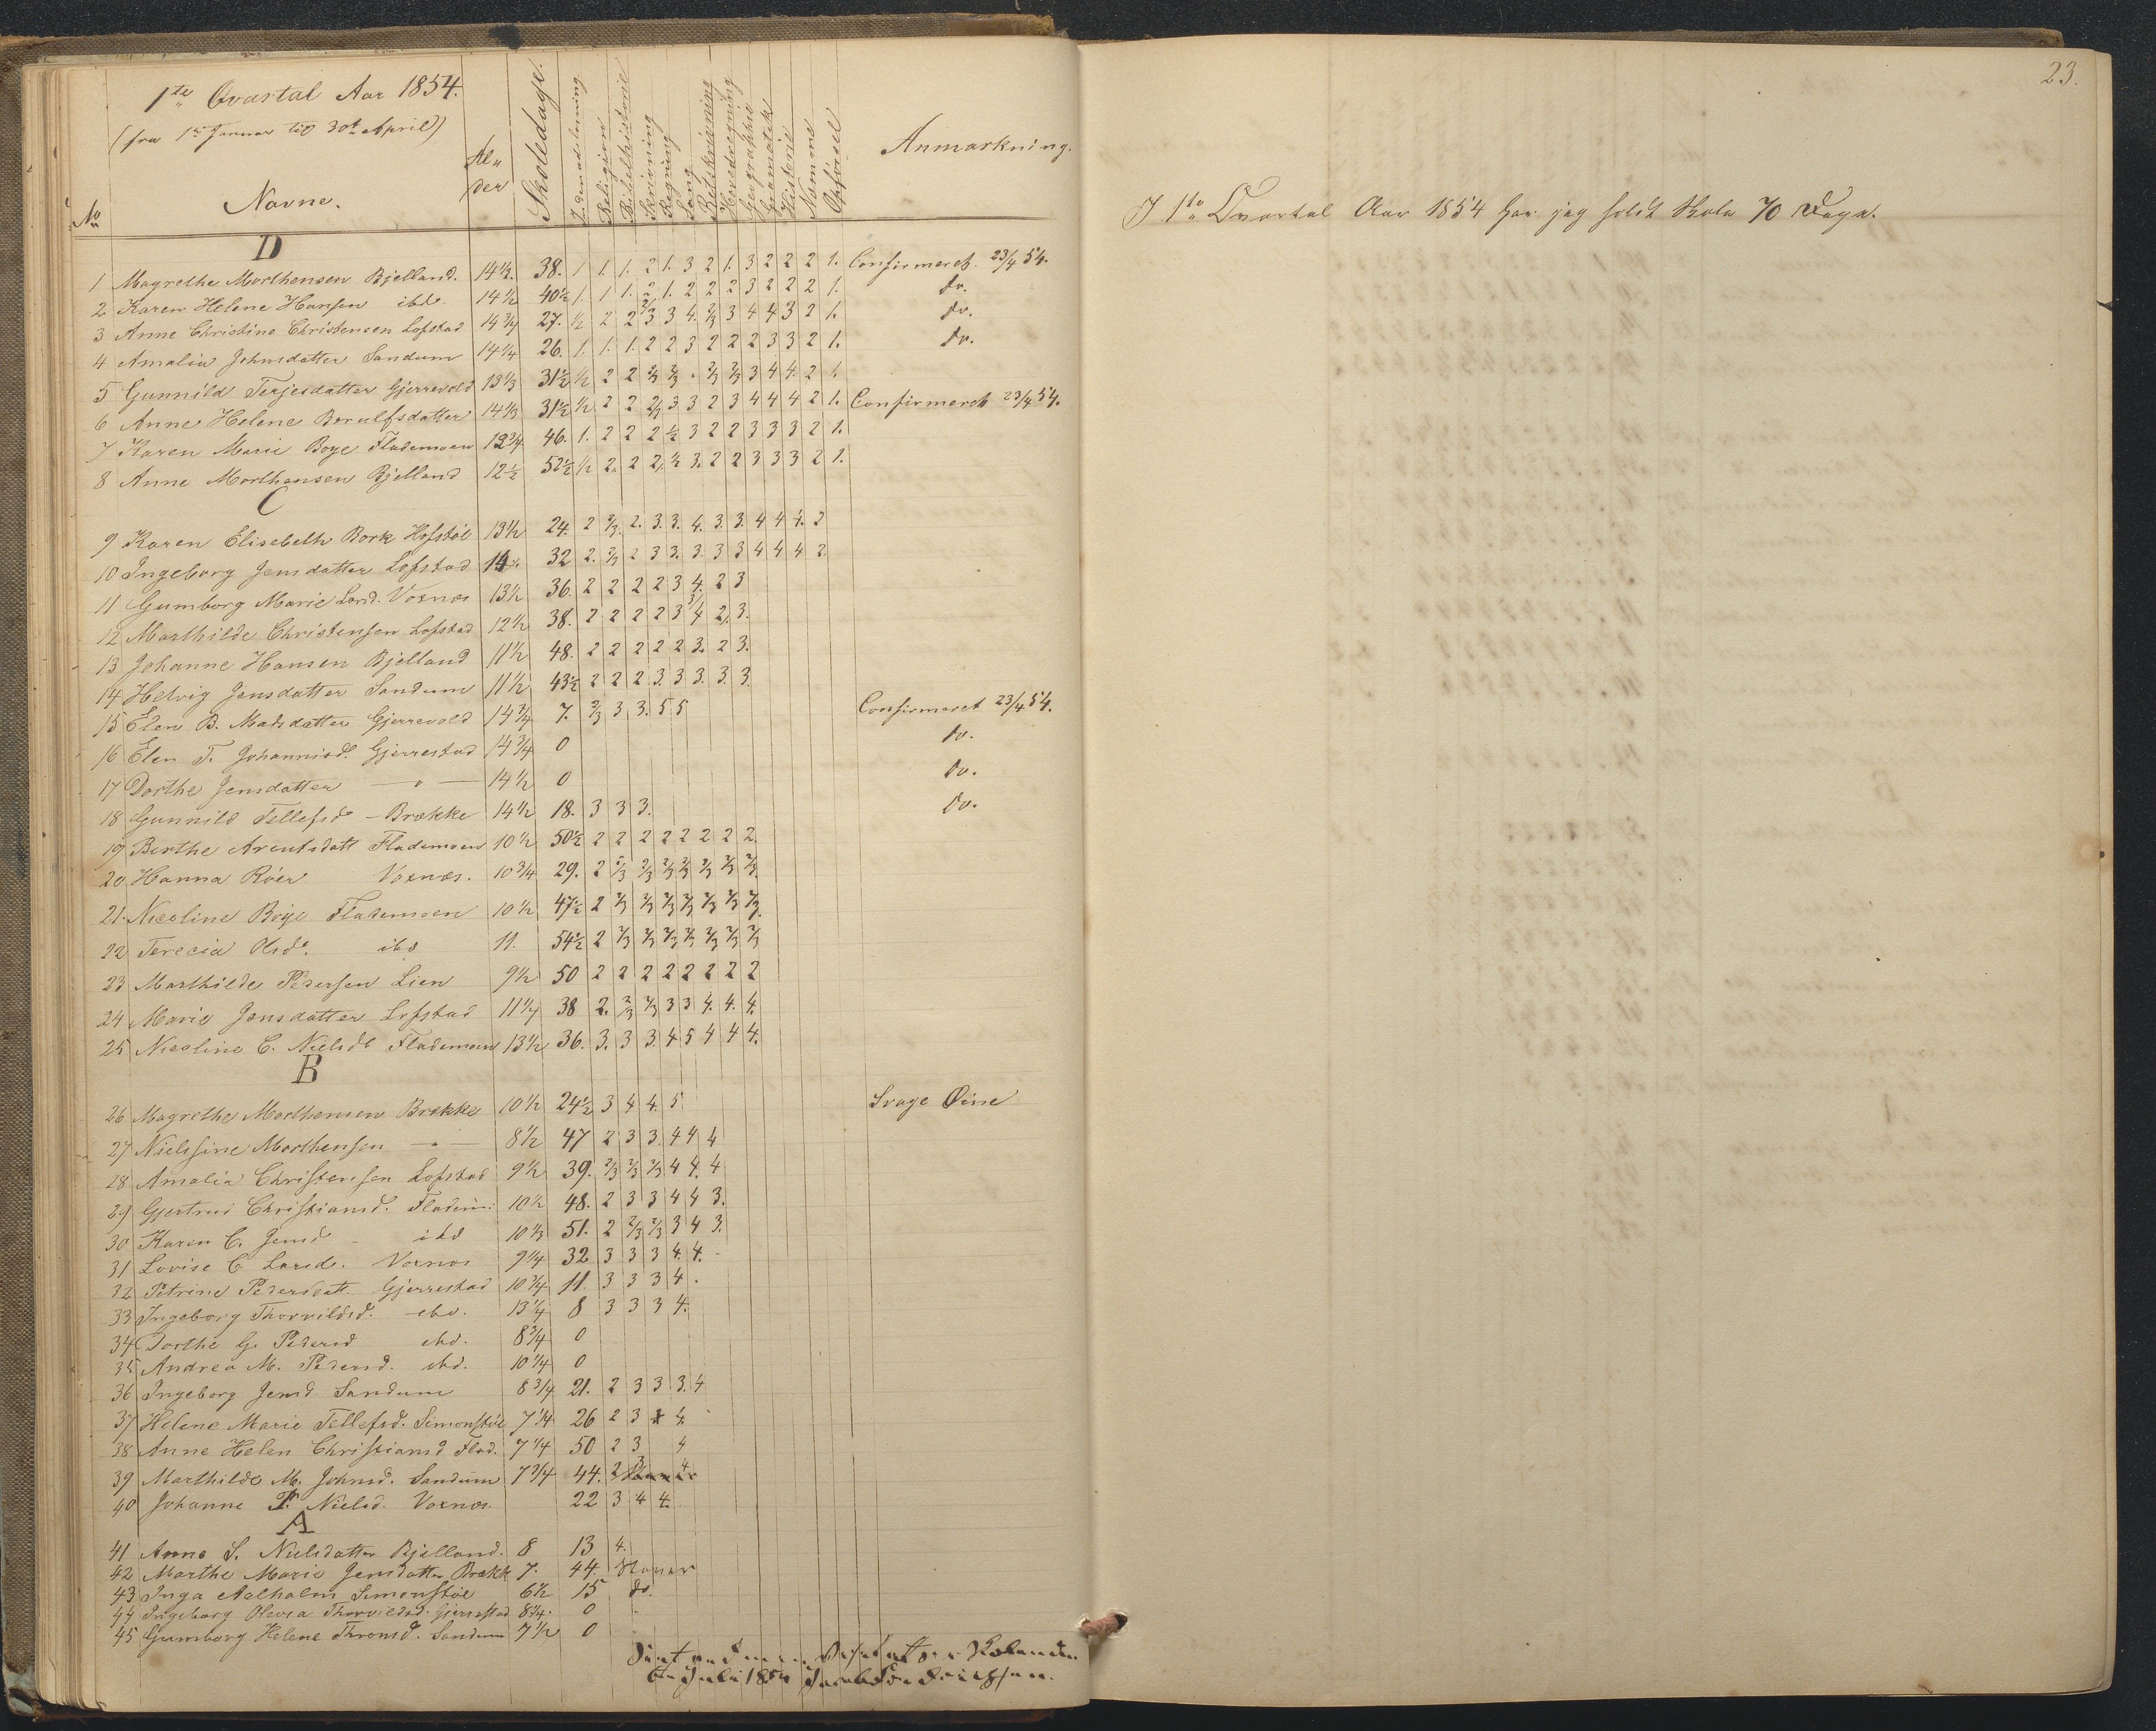 1te Qvartal Aar 1854.
(fra 1ste Januar til 30te April)
No Navne. Alder Skoledage. Indenadlæsning Religion Bibelhistorie Skrivning Regning Sang Retskrivning Hovedregning Geographie Gramatik Historie Nemme Opförsel Anmærkning.
D
1 Magrethe Morthensen Bjelland. 14½. 38. 1 1. 1. 2 1. 3 2 1. 3 2 2 2 1. Confirmeret. 23/4 54.
2 Karen Helene Hansen ibd. 14½ 40½ 1. 1 1. 2 1. 2 2 2 3 2 2 2 1. do.
3 Anne Christine Christensen Lofstad 14¾ 27. ½ 2 2 2/3 3 4. 2/3 3 4 4 3 2 1. do.
4 Amalia Johnsdatter Sandum 14¼ 26. 1. 1. 1. 2 2 3 2 2 2 3 3 2 1. do.
5 Gunnild Terjesdatter Gjerrevold 13⅓ 31½ ½ 2 2 2/3 2/3 . 2/3 2/3 3 4 4. 2 1.
6 Anne Helene Berulfsdatter 14⅓ 31½ ½ 2 2 2/3 3 3 2 3 4 4 4 2 1. Confirmeret 23/4 54.
7 Karen Marie Boye Flademoen 12¾ 46. 1. 2 2 2 ½ 3 2 2 3 3 3 2 1.
8 Anne Morthensen Bjelland 12½ 52½ ½ 2. 2 2. ½ 3. 2 2 3 3 3 2 1.
C
9 Karen Elisebeth Bork Hofstöl 13½ 24. 2 2/3. 2. 3. 3. 4. 3. 3. 4 4 4. 2
10 Ingeborg Jensdatter Lofstad 14 32 2. 2/3 2 3 3. 3. 3 3 4 4 4 2
11 Gumborg Marie Larsd. Voxnæs 13½ 36. 2 2 2 2 3 4. 2 3
12 Marthilde Christensen Lofstad 12½ 38. 2 2 2 2 3 3/4 2. 3.
13 Johanne Hansen Bjelland 11½ 48. 2 2 2 2 2 3. 2 3.
14 Helvig Jensdatter Sandum 11½ 43½ 2 2 2 3. 3 3. 3. 3.
15 Elen B. Madsdatter Gjerrevold 14¾ 7. 2/3 3 3. 5 5 Confirmeret 23/4 54.
16 Elen T. Johannisd. Gjerrestad 14¾ 0 do.
17 Dorthe Jensdatter — " — 14½ 0 do.
18 Gunnild Tellefsd - Brække 14½ 18. 3 3 3. do.
19 Berthe Arentsdatt Flademoen 10½ 50½ 2 2 2 2 2 2 2 2.
20 Hanna Röer Voxnæs. 10¾ 29. 2 2/3 2/3 2/3 2/3 2/3 2/3 2/3.
21. Nicoline Böye Flademoen 10½ 47½ 2 2/3 2/3 2/3 2/3 2/3 2/3 2/3.
22 Terecia Olsd. ibd 11. 54½ 2 2/3 2/3 2/3 2/3 2/3 2/3 2/3
23 Marthilde Pedersen Lien 9½ 50 2 2 2 2 2 2 2 2
24 Marie Jensdatter Lofstad 11¼ 38 2. 2/3 2/3 3 3 4. 4. 4.
25 Nicoline C. Nielsdt Flademoen 13½ 36. 3. 3 3. 4 5 4 4 4.
B
26 Magrethe Morthensen Brække 10½ 24½ 3 4 4. 5 Svage Öine
27 Nielssine Morthensen — " — 8½ 47 2 3 3. 4 4 4
28 Amalia Christensen Lofstad 9½ 39. 2/3 2/3 2/3 4 4. 4
29 Gjertrud Christiansd. Fladem: 10½ 48. 2 3 3 4 4 3.
30 Karen C. Jensd - ibd 10⅓ 51. 2 2/3 2/3 3 4 3.
31 Lovise C. Larsd. Voxnæs 9¼ 32 3 3 3 4. 4. -
32 Petrine Pedersdatt. Gjerrestad 10¾ 11. 3 3 3 4 .
33 Ingeborg Thorvildsd. ibd. 13¼ 8 3 3 3 4.
34 Dorthe G. Pedersd ibd. 8¾ 0
35 Andrea M. Pedersd. ibd. 10¼ 0
36 Ingeborg Jensd. Sandum 8¾ 21. 2 3 3 3. 4
37 Helene Marie Tellefsd. Simonstöl 7¼ 26 2 3 4.
38 Anne Helen Christiansd Flad. 7¼ 50 2 3 4
39 Marthilde M. Johnsd. Sandum 7¾ 44. 2 3 4
40 Johanne T. Nielsd. Voxnæs. 22 3 4 4.
A
41 Anne S. Nielsdatter Bjelland. 8 13 4.
42 Marthe Marie Jensdatter Brækk 7. 44. Staver
43 Inga Aalholm Simonstöl 6½ 15 do.
44 Ingeborg Olevia Thorvildsd. Gjerrestad 8¾. 0
45 Gumborg Helene Thronsd. Sandum 7½ 0
Juli 1854
23.
I 1te Qvartal Aar 1854 har jeg holdt Skole 70 Dage.